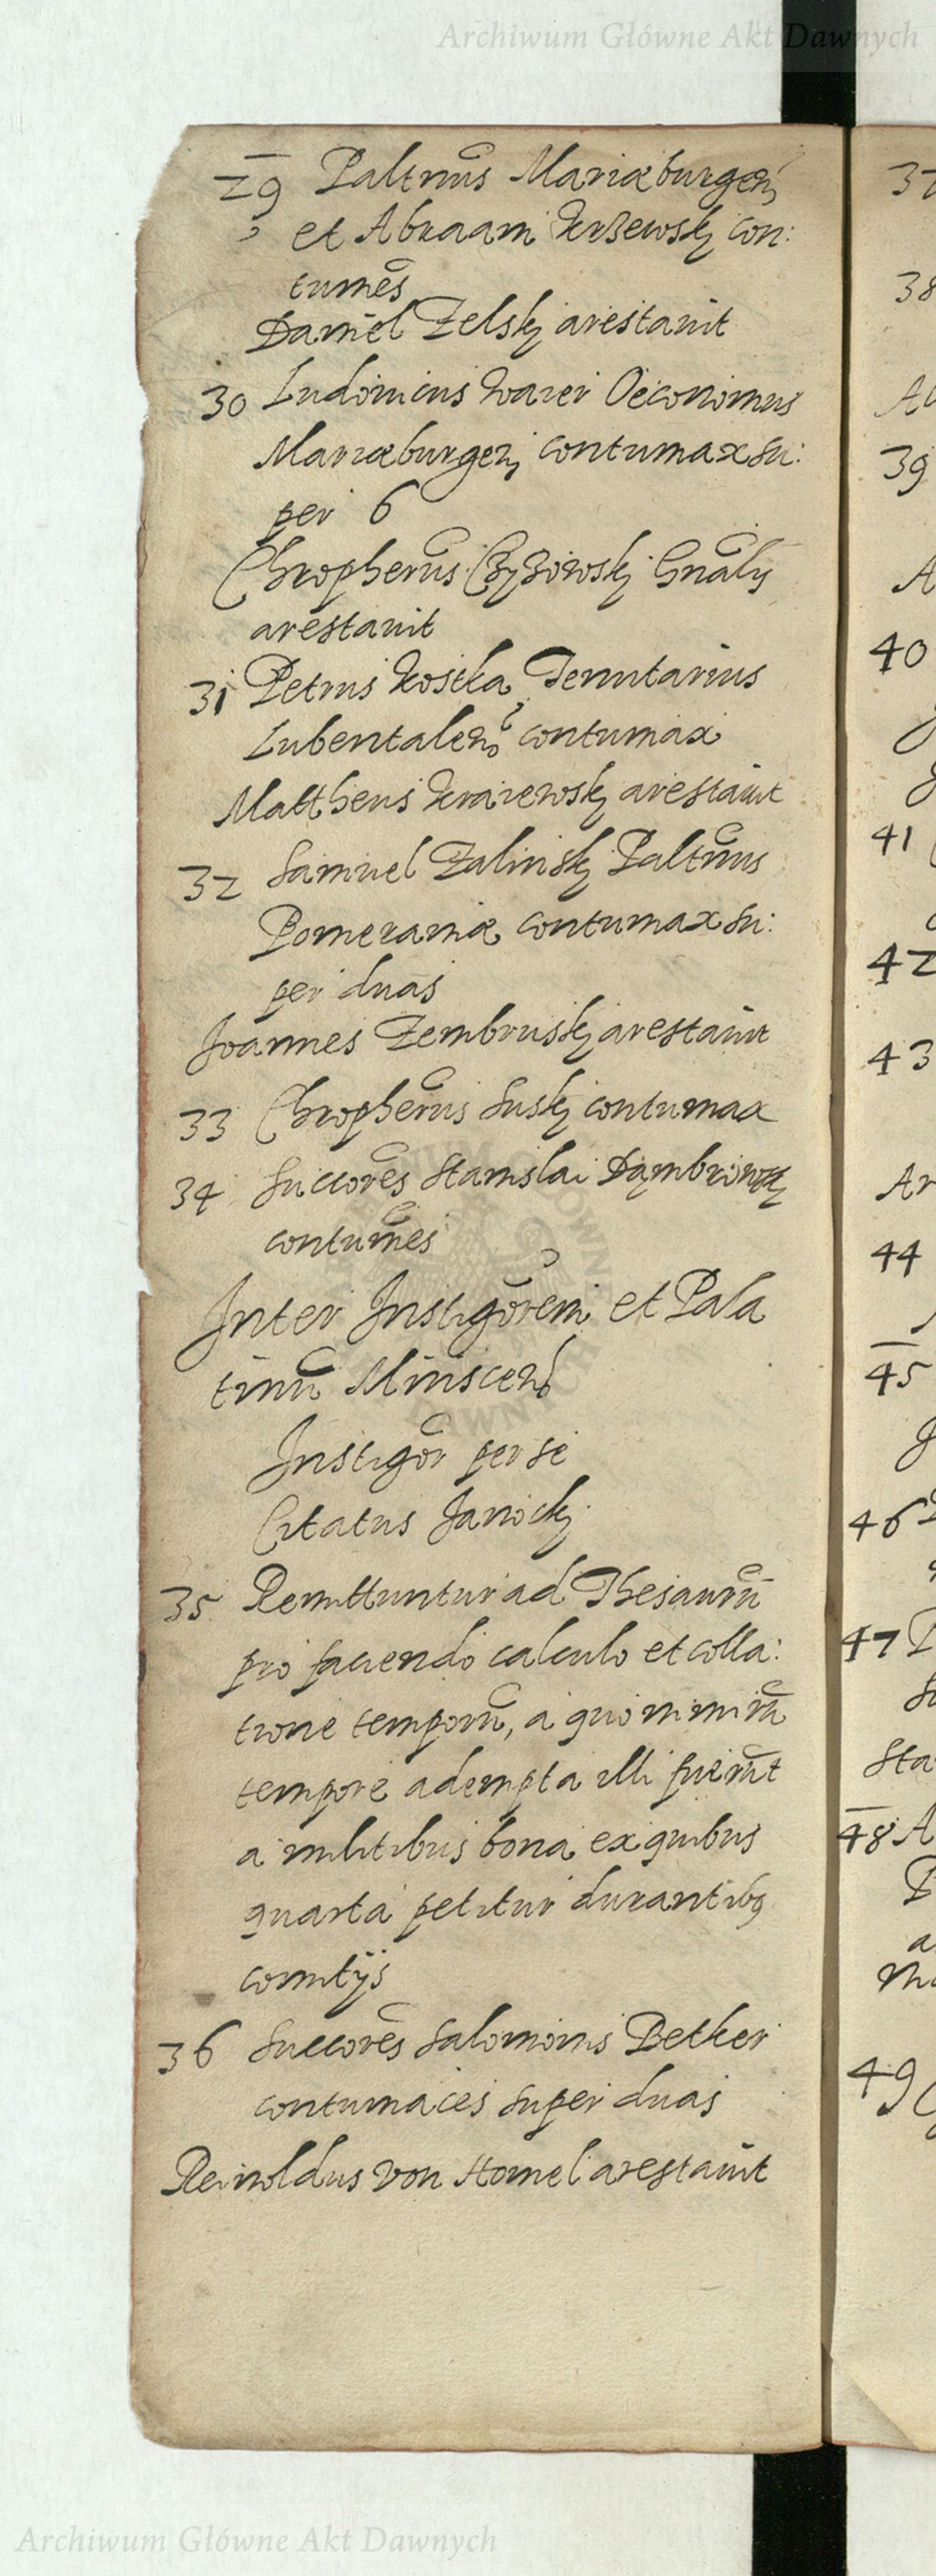 Archiwum Główne Akt Dawnych
29 Paltnus Mariæburgen
et Abraam Krzewskj con:
tumes
Daniel Zelskj arestavit
30 Ludovicus Waier Oeconomus
Mariæburgen contumax su:
per 6
Chropherus Czyzowskj Gnalis
arestavit
31 Petrus Kostka Tenutarius
Lubentalen contumax
Mattheus Kraiewskj arestavit
32 Samuel Zalinskj Paltnus
Pomeraniæ contumax su:
per duas
Joannes Zembruskj arestavit
33 Chropherus Suskj contumax
34 Succores Stanislai Dąmbrowskj
contumes
Inter Instigorem et Pala
tinu Minscen
Instigor per se
Citatus Janickj
35 Remittuntur ad Thesauru
pro faciendo calculo et colla:
tione temporu, a quo nimiru
tempore adempta illi fuerut
a militibus bona ex quibus
quarta petitur durantibq
comitijs
36 Succores Salomonis Betker
contumaces super duas
Reinoldus von Homel arestavit
37
38
39
A
40
41
42
43
Ar
44
45
46
47
Sta
48 A
49
Archiwum Główne Akt Dawnych